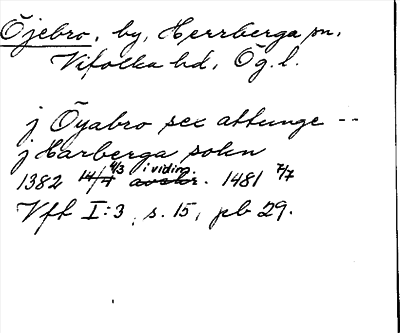 Öjebro, by, Herrberga sn,
Vifolka hd, Ög. l.
j Öyabro sex attunge --
j Harberga sokn
1382 4/3 i viding. 1481 7/7
Vfk I:3, s. 15, jb 29.